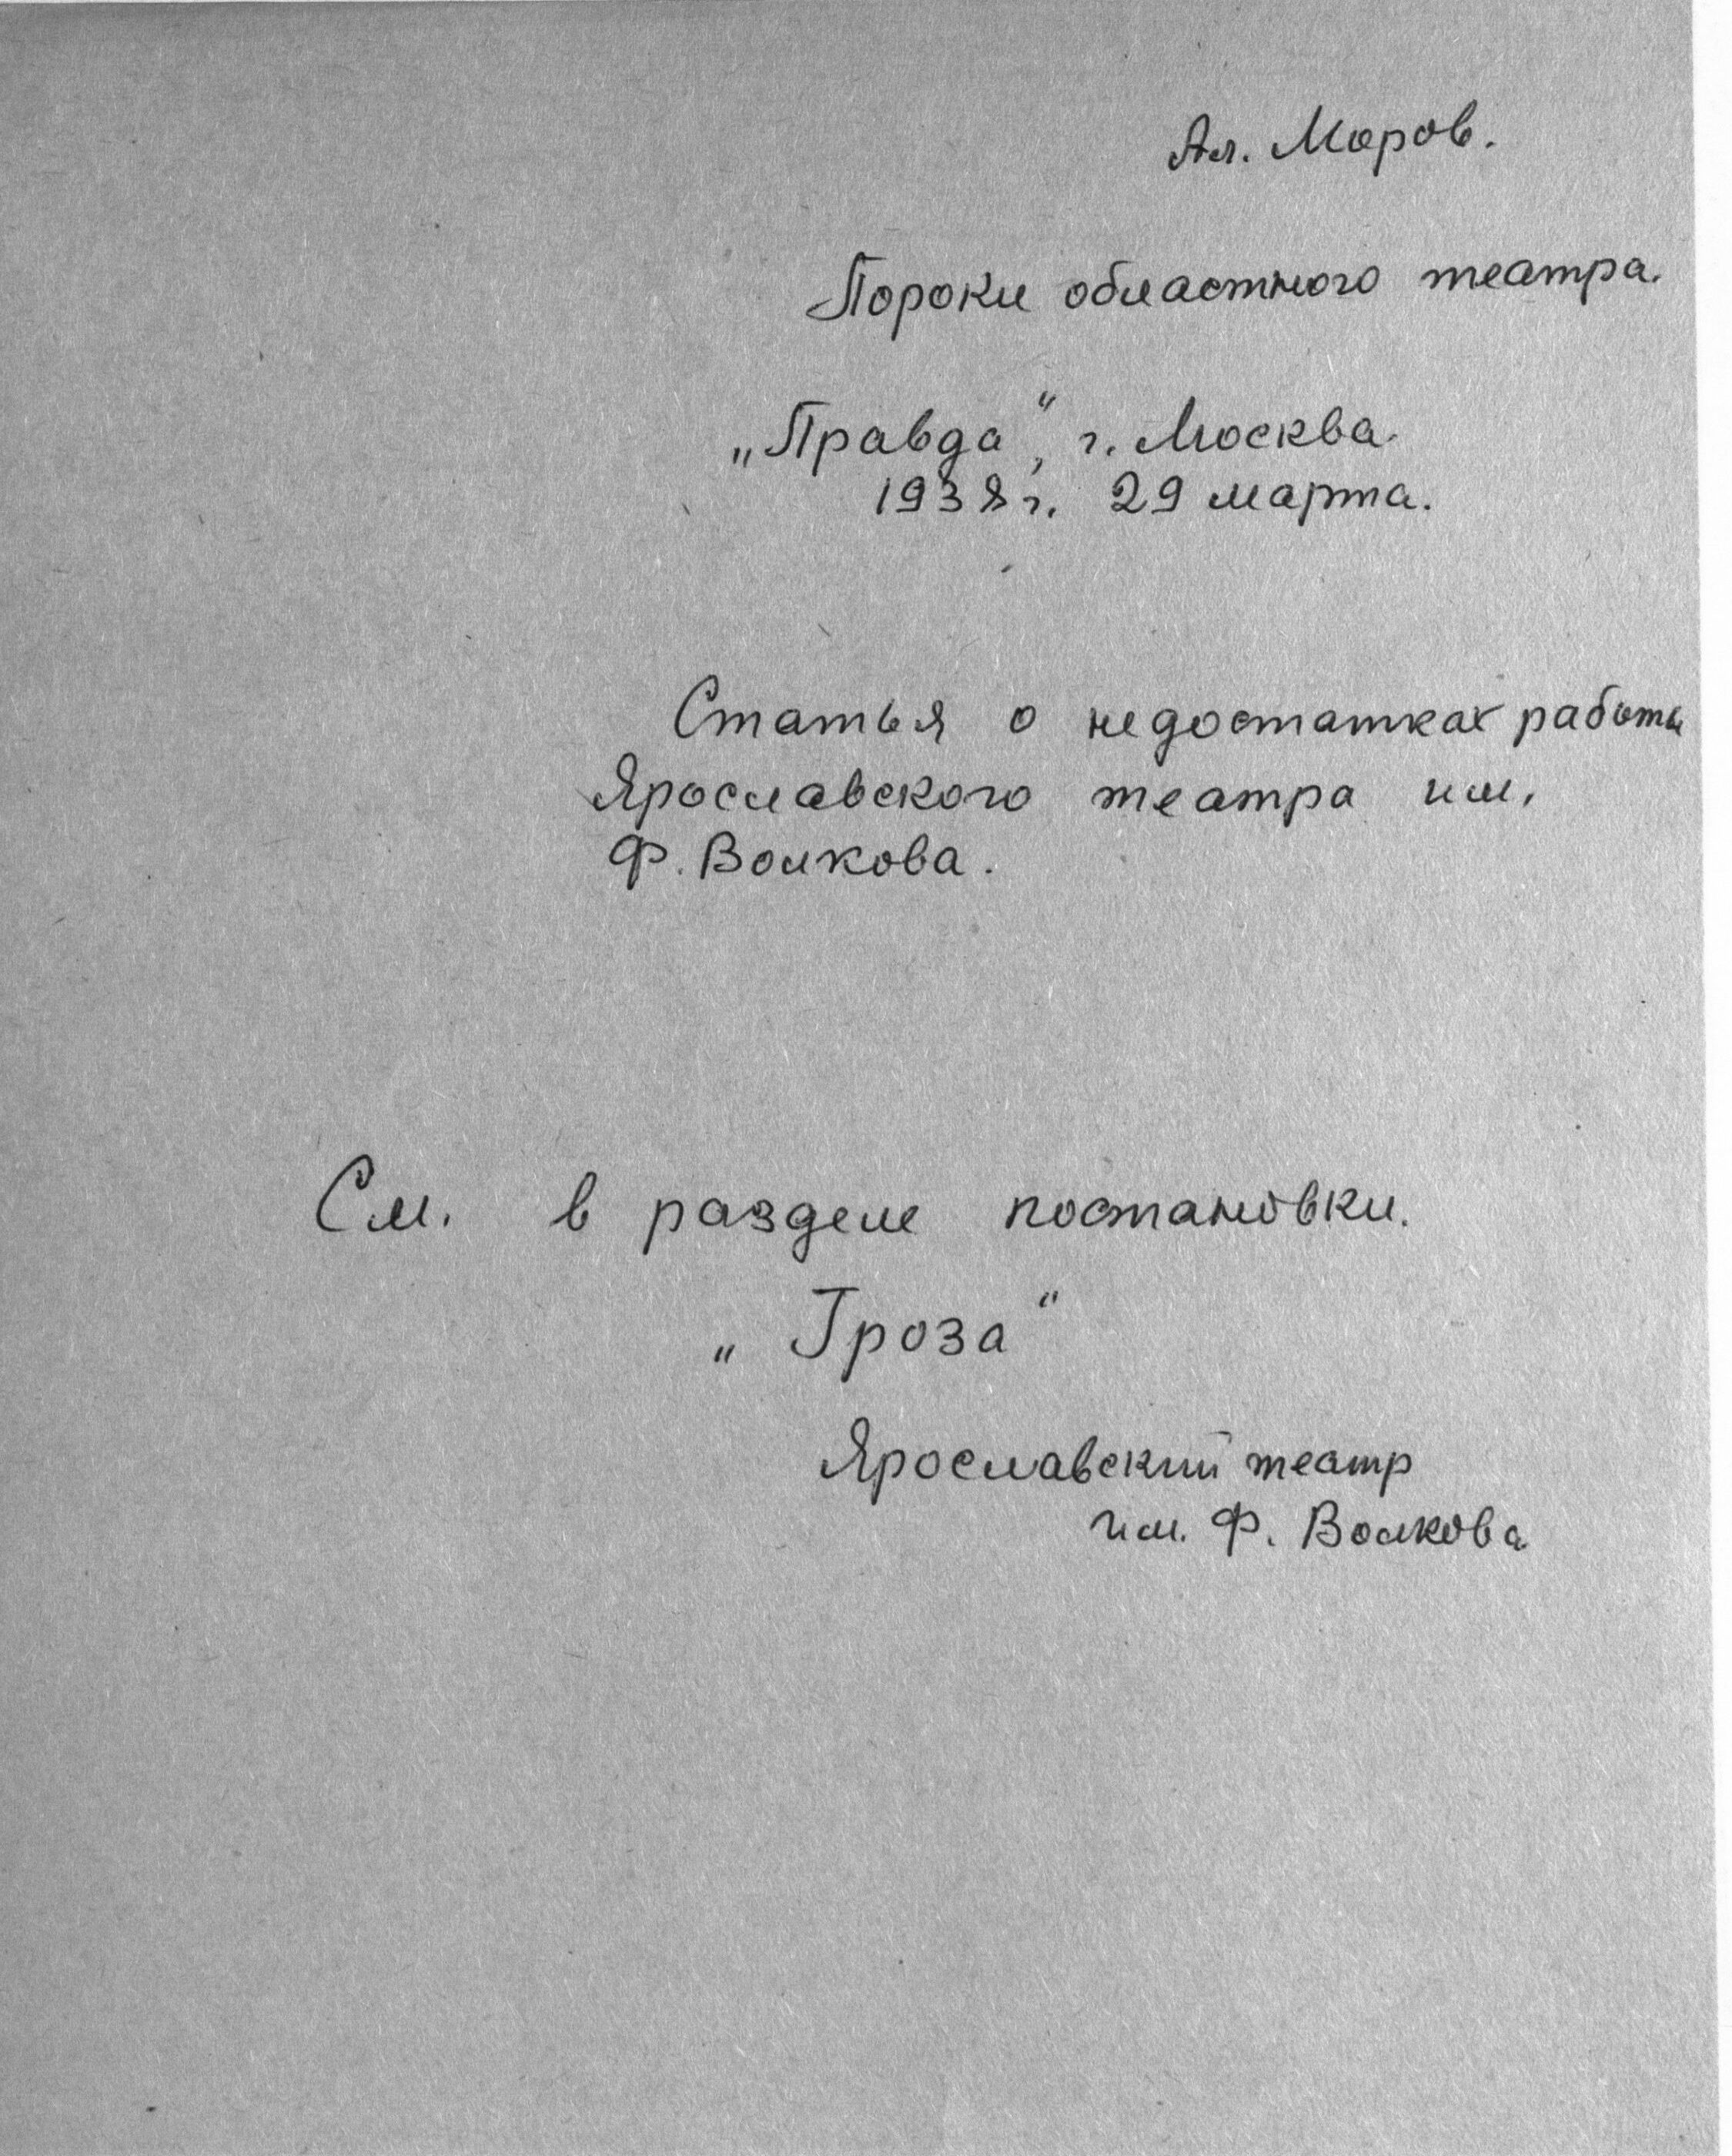 Ал. Моров.
Пороки областного театра.
„Правда“, г. Москва.
1938 г. 29 марта.
Статья о недостатках работы
Ярославского театра им.
Ф. Волкова.
См. в разделе постановки.
„Гроза“
Ярославский театр
им. Ф. Волкова